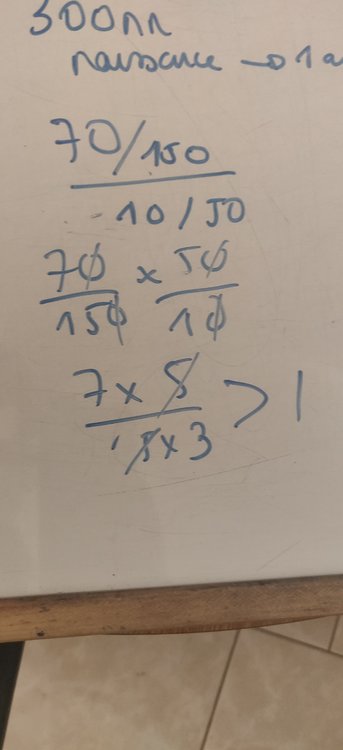 300
naissance → 1 a
70/150
10/50
70/150 x 50/10
7 x 5 > 1
5 x 3